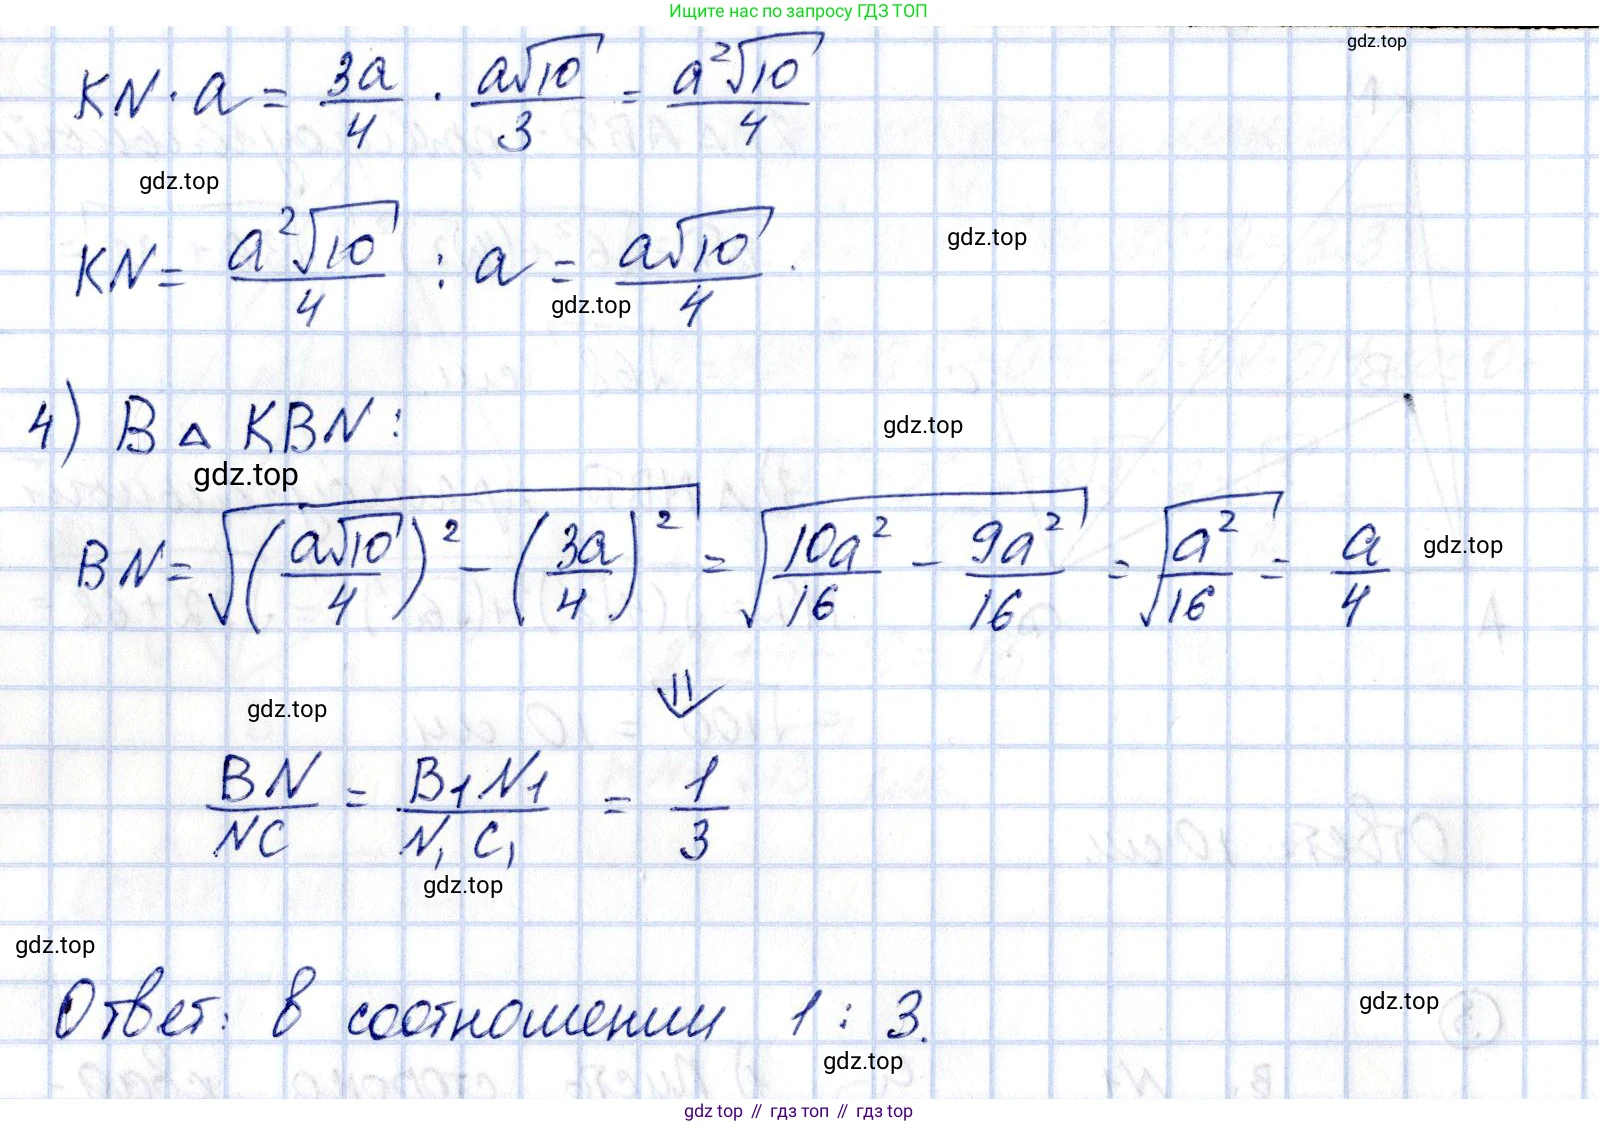 Ищите нас по запросу ГДЗ ТОП
gdz.top
KN · a = 3a/4 · a√10/3 = a²√10/4
gdz.top
gdz.top
KN = a²√10/4 : a = a√10/4.
gdz.top
4) В △ KBN:
gdz.top
gdz.top
BN = √((a√10/4)² − (3a/4)²) = √(10a²/16 − 9a²/16) = √(a²/16) = a/4
gdz.top
⇓
gdz.top
BN/NC = B₁N₁/N₁C₁ = 1/3
gdz.top
gdz.top
Ответ: в соотношении 1 : 3.
gdz.top
gdz.top
gdz top // гдз топ // гдз top